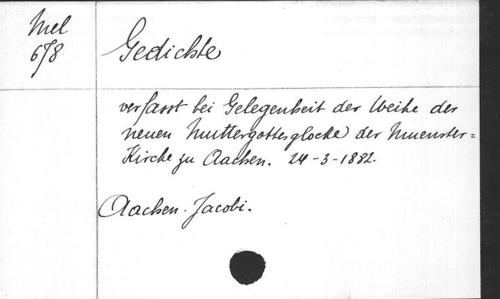 Mel
678
Gedichte
verfasst bei Gelegenheit der Weihe der
neuen Muttergottesglocke der Muenster=
Kirche zu Aachen. 24-3-1882.
Aachen. Jacobi.